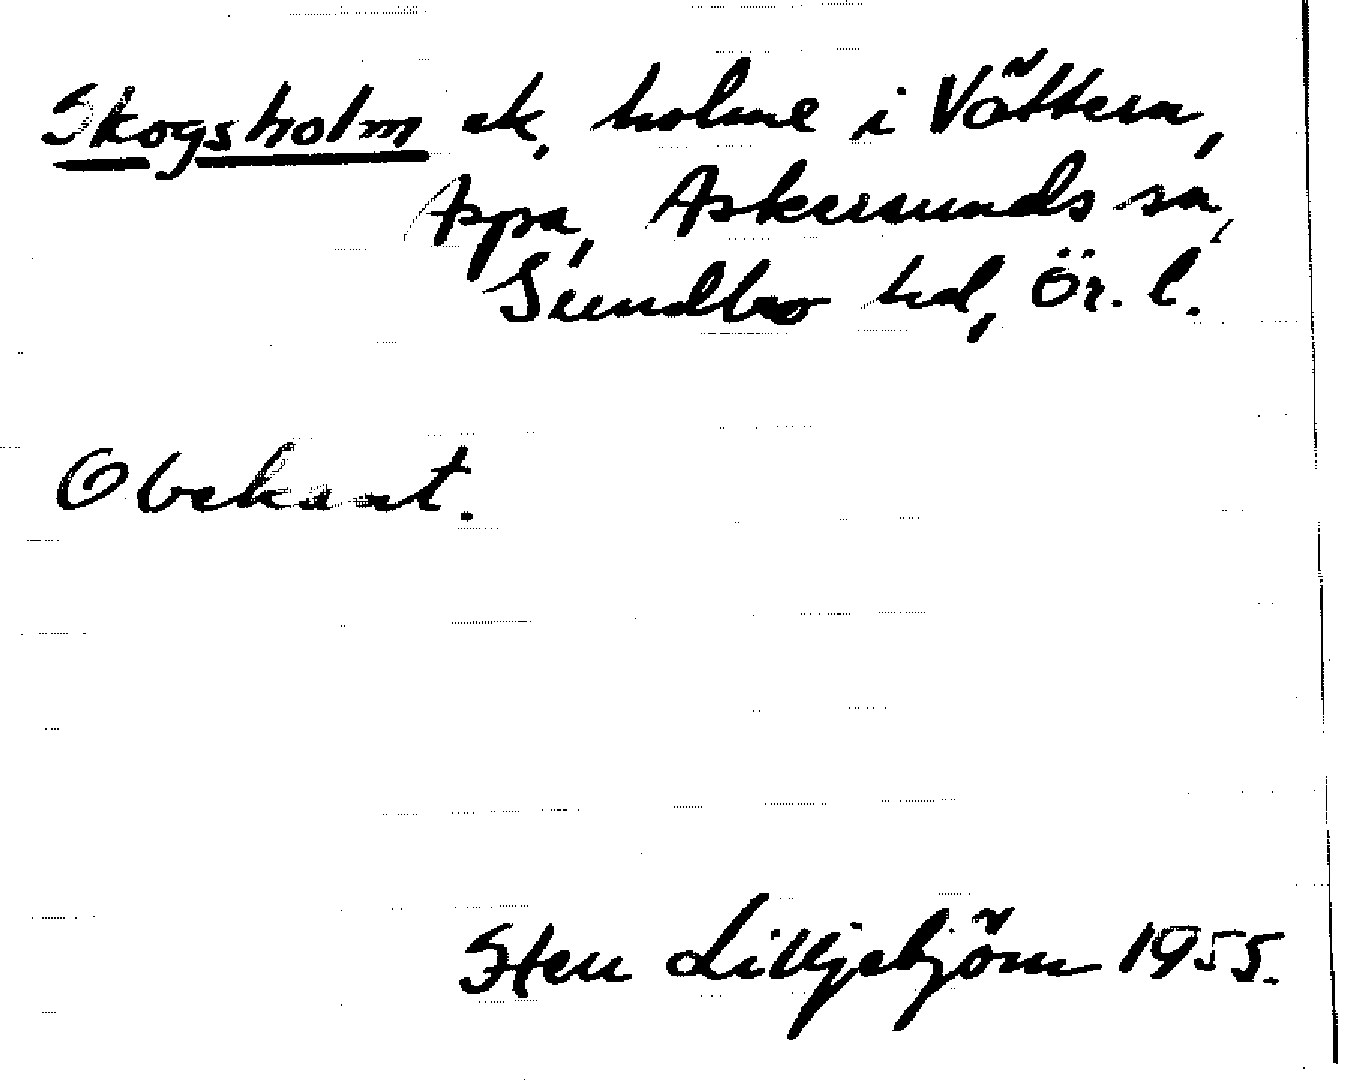 Skogsholm ek, holme i Vättern,
Aspa, Askersunds sn,
Sundbo hd, Ör. l.
Obekant.
Sten Lilljebjörn 1955.